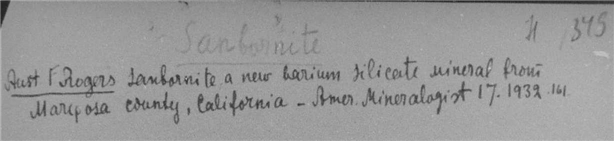 "Sanbornite" H 1345
Aust F Rogers Sanbornite a new barium silicate mineral from
Mariposa county, California - Amer. Mineralogist 17. 1932. 161